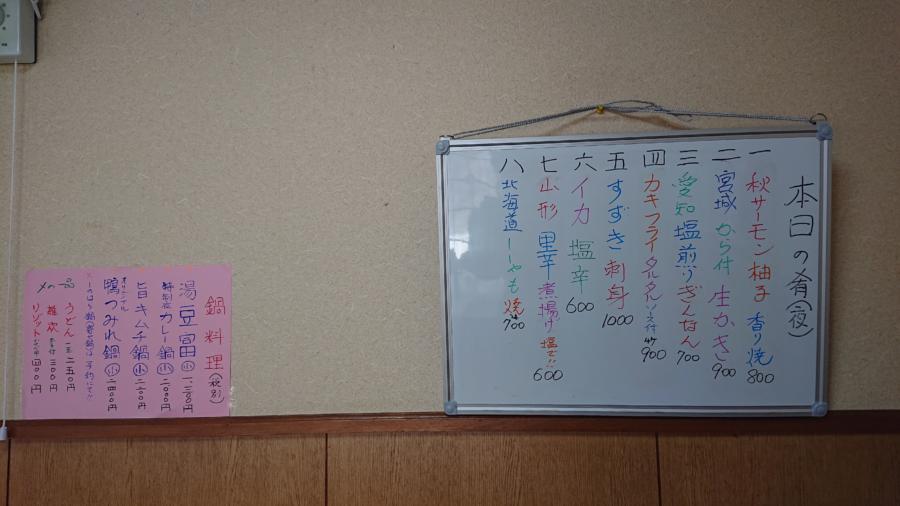 本日の肴(夜)
一 秋サーモン柚子香り焼 800
二 宮城 から付 生かき 900
三 愛知 塩煎りぎんなん 700
四 カキフライタルタルソース付 4ケ 900
五 すずき 刺身 1000
六 イカ 塩辛 600
七 山形 里芋煮揚げ 塩で!! 600
八 北海道 ししゃも 焼 700
鍋料理(税別)
湯豆富 小 一、三〇〇円
特製カレー鍋 小 二〇〇〇円
旨キムチ鍋 小 二一〇〇円
鴨つみれ鍋 小 二四〇〇円
〆の一品
うどん 一玉 二五〇円
雑炊 三〇〇円
リゾット 四〇〇円